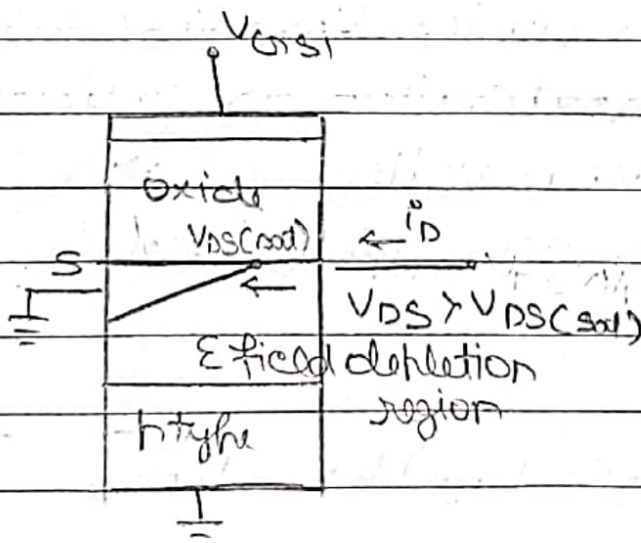 VGS1
oxide
VDS(sat)
iD
S
VDS > VDS(sat)
E field depletion
region
p type